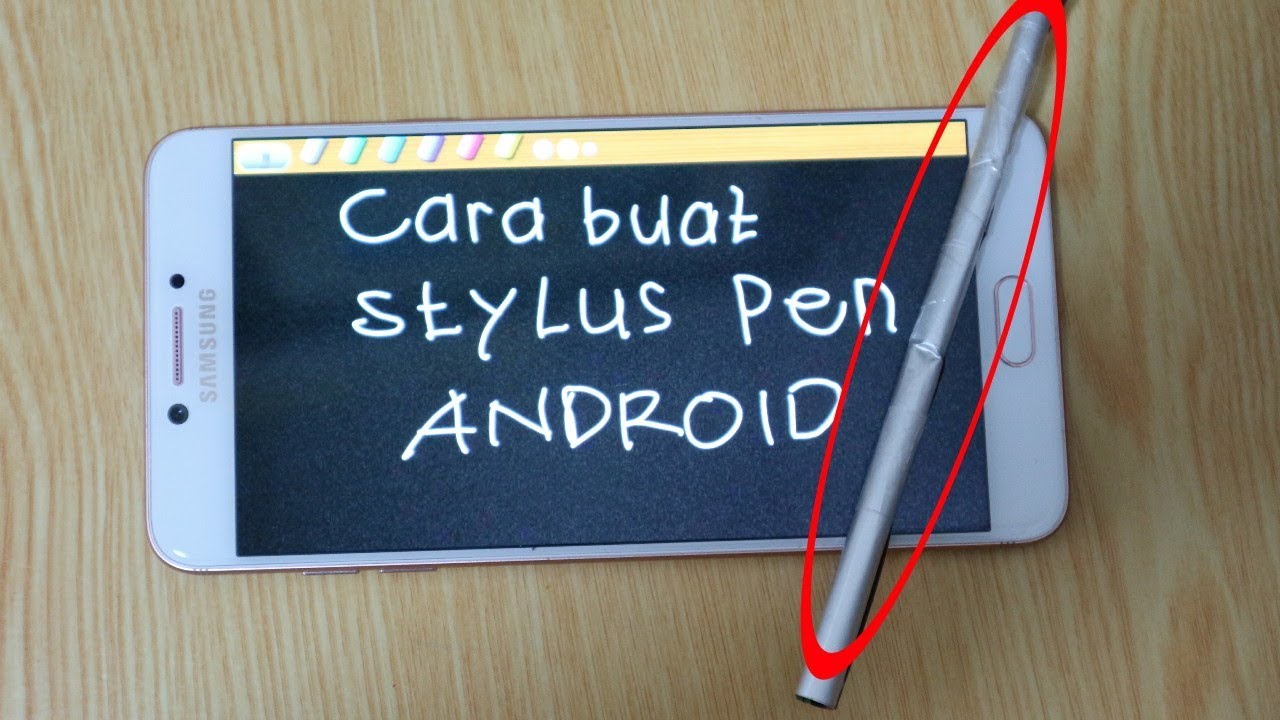 SAMSUNG
Cara buat
stylus pen
ANDROID